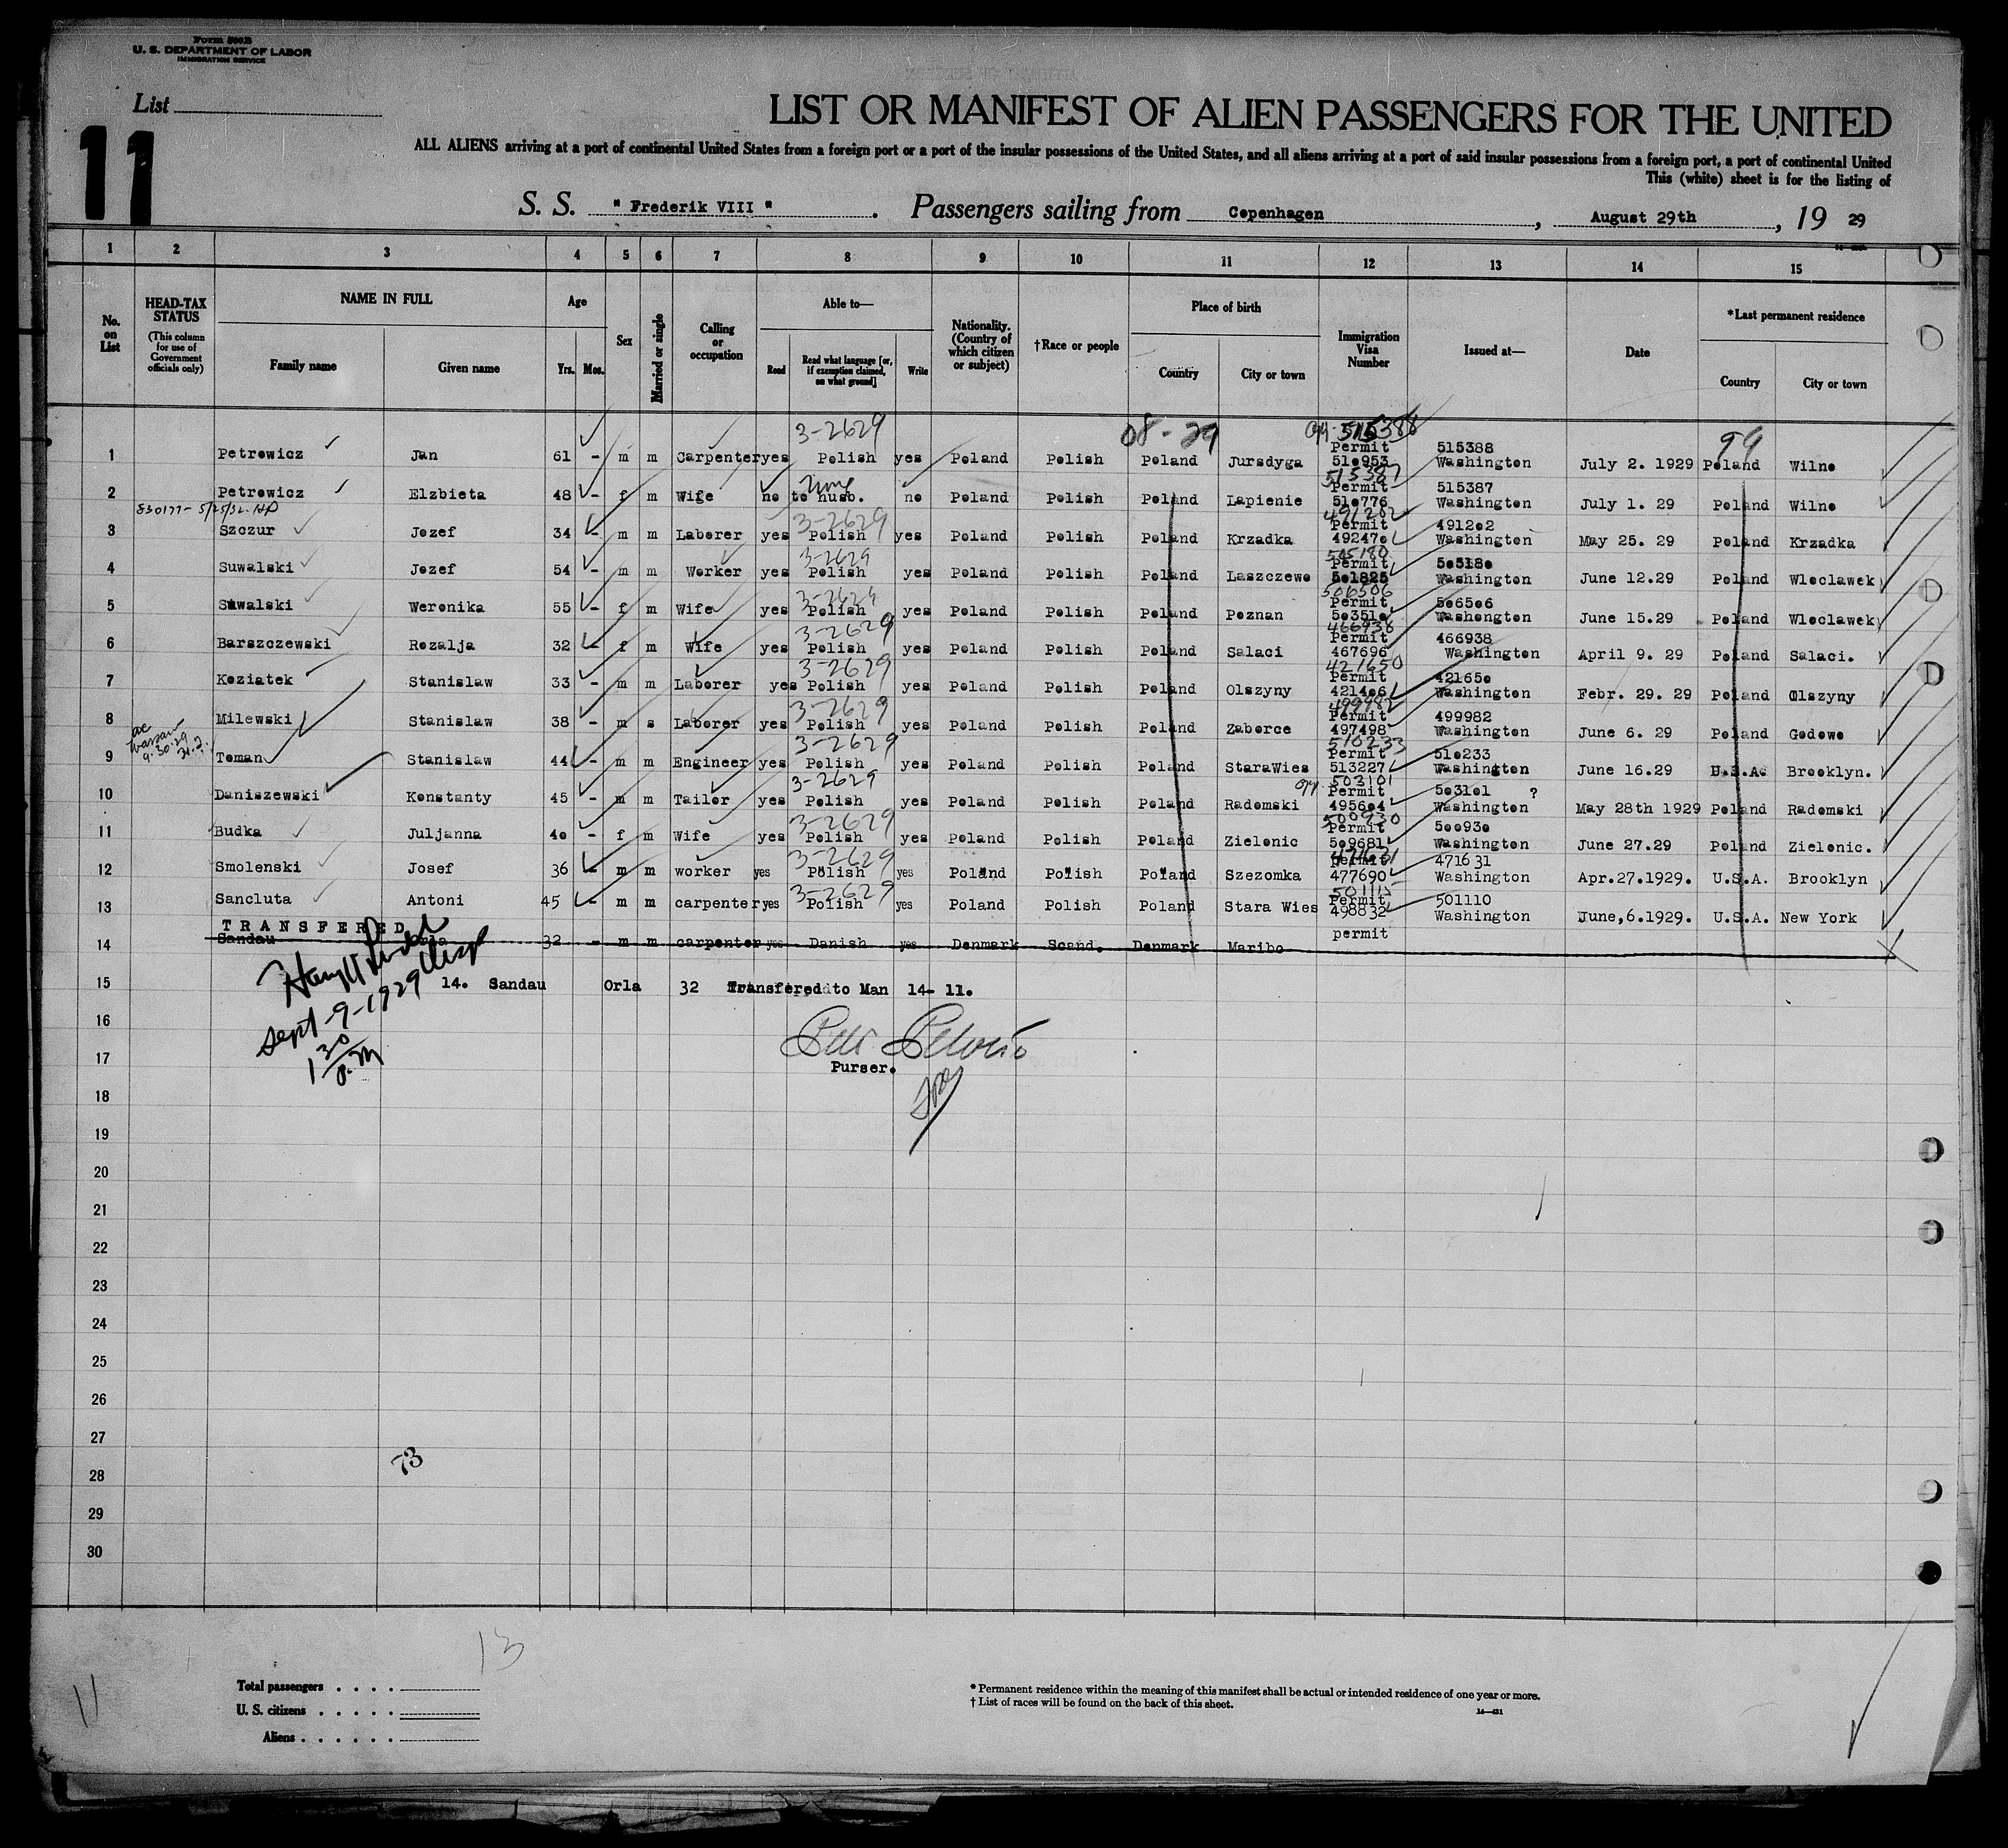 Form 500B
U. S. DEPARTMENT OF LABOR
IMMIGRATION SERVICE
List
11
LIST OR MANIFEST OF ALIEN PASSENGERS FOR THE UNITED
ALL ALIENS arriving at a port of continental United States from a foreign port or a port of the insular possessions of the United States, and all aliens arriving at a port of said insular possessions from a foreign port, a port of continental United
This (white) sheet is for the listing of
S. S. " Frederik VIII " . Passengers sailing from Copenhagen , August 29th , 19 29
1 2 3 4 5 6 7 8 9 10 11 12 13 14 15
No. on List
HEAD-TAX STATUS (This column for use of Government officials only)
NAME IN FULL
Family name Given name
Age
Yrs. Mos.
Sex
Married or single
Calling or occupation
Able to—
Read Read what language [or, if exemption claimed, on what ground] Write
Nationality. (Country of which citizen or subject)
†Race or people
Place of birth
Country City or town
Immigration Visa Number
Issued at—
Date
*Last permanent residence
Country City or town
3-2629 08-29 515388 99
Permit 515388
1 Petrowicz Jan 61 - m m Carpenter yes Polish yes Poland Polish Poland Jursdyga 510953 Washington July 2. 1929 Poland Wilno
None 515387
Permit 515387
2 Petrowicz Elzbieta 48 - f m Wife no to husb. no Poland Polish Poland Lapienie 510776 Washington July 1. 29 Poland Wilno
830177- 5/25/32. 3-2629 491202
Permit 491202
3 Szczur Jozef 34 - m m Laborer yes Polish yes Poland Polish Poland Krzadka 492470 Washington May 25. 29 Poland Krzadka
3-2629 505180
Permit 505180
4 Suwalski Jozef 54 - m m Worker yes Polish yes Poland Polish Poland Laszczewo 501825 Washington June 12.29 Poland Wloclawek
3-2629 506506
Permit 506506
5 Suwalski Weronika 55 - f m Wife yes Polish yes Poland Polish Poland Poznan 503510 Washongton June 15.29 Poland Wloclawek
3-2629 466938
Permit 466938
6 Barszczewski Rozalja 32 - f m Wife yes Polish yes Poland Polish Poland Salaci 467696 Washington April 9. 29 Poland Salaci.
3-2629 421650
Permit 421650
7 Koziatek Stanislaw 33 - m m Laborer yes Polish yes Poland Polish Poland Olszyny 421406 Washington Febr. 29. 29 Poland Olszyny
3-2629 499982
Permit 499982
8 Milewski Stanislaw 38 - m s Laborer yes Polish yes Poland Polish Poland Zaborce 497498 Washington June 6. 29 Poland Godowo
Warsaw 9-30-29 3-2629 510233
Permit 510233
9 Toman Stanislaw 44 - m m Engineer yes Polish yes Poland Polish Poland StaraWies 513227 Washington June 16.29 U.S.A. Brooklyn.
3-2629 99 503101
Permit 503101 ?
10 Daniszewski Konstanty 45 - m m Tailor yes Polish yes Poland Polish Poland Radomski 495604 Washington May 28th 1929 Poland Radomski
3-2629 500930
Permit 500930
11 Budka Juljanna 40 - f m Wife yes Polish yes Poland Polish Poland Zielonic 509681 Washington June 27.29 Poland Zielonic.
3-2629 471631
permit 471631
12 Smolenski Josef 36 - m m worker yes Polish yes Poland Polish Poland Szezomka 477690 Washington Apr.27.1929. U.S.A. Brooklyn
3-2629 501115
Permit 501110
13 Sancluta Antoni 45 - m m carpenter yes Polish yes Poland Polish Poland Stara Wies 498832 Washington June,6.1929. U.S.A. New York
TRANSFERED permit
14 Sandau Orla 32 - m m carpenter yes Danish yes Denmark Scand. Denmark Maribo
15 14. Sandau Orla 32 Transfered to Man 14- 11.
Sept-9-1929
1 30 P.M
16
17 Purser.
18
19
20
21
22
23
24
25
26
27
73
28
29
30
13
11
Total passengers . . . .
U. S. citizens . . . . .
Aliens . . . . . .
* Permanent residence within the meaning of this manifest shall be actual or intended residence of one year or more.
† List of races will be found on the back of this sheet.
14—431